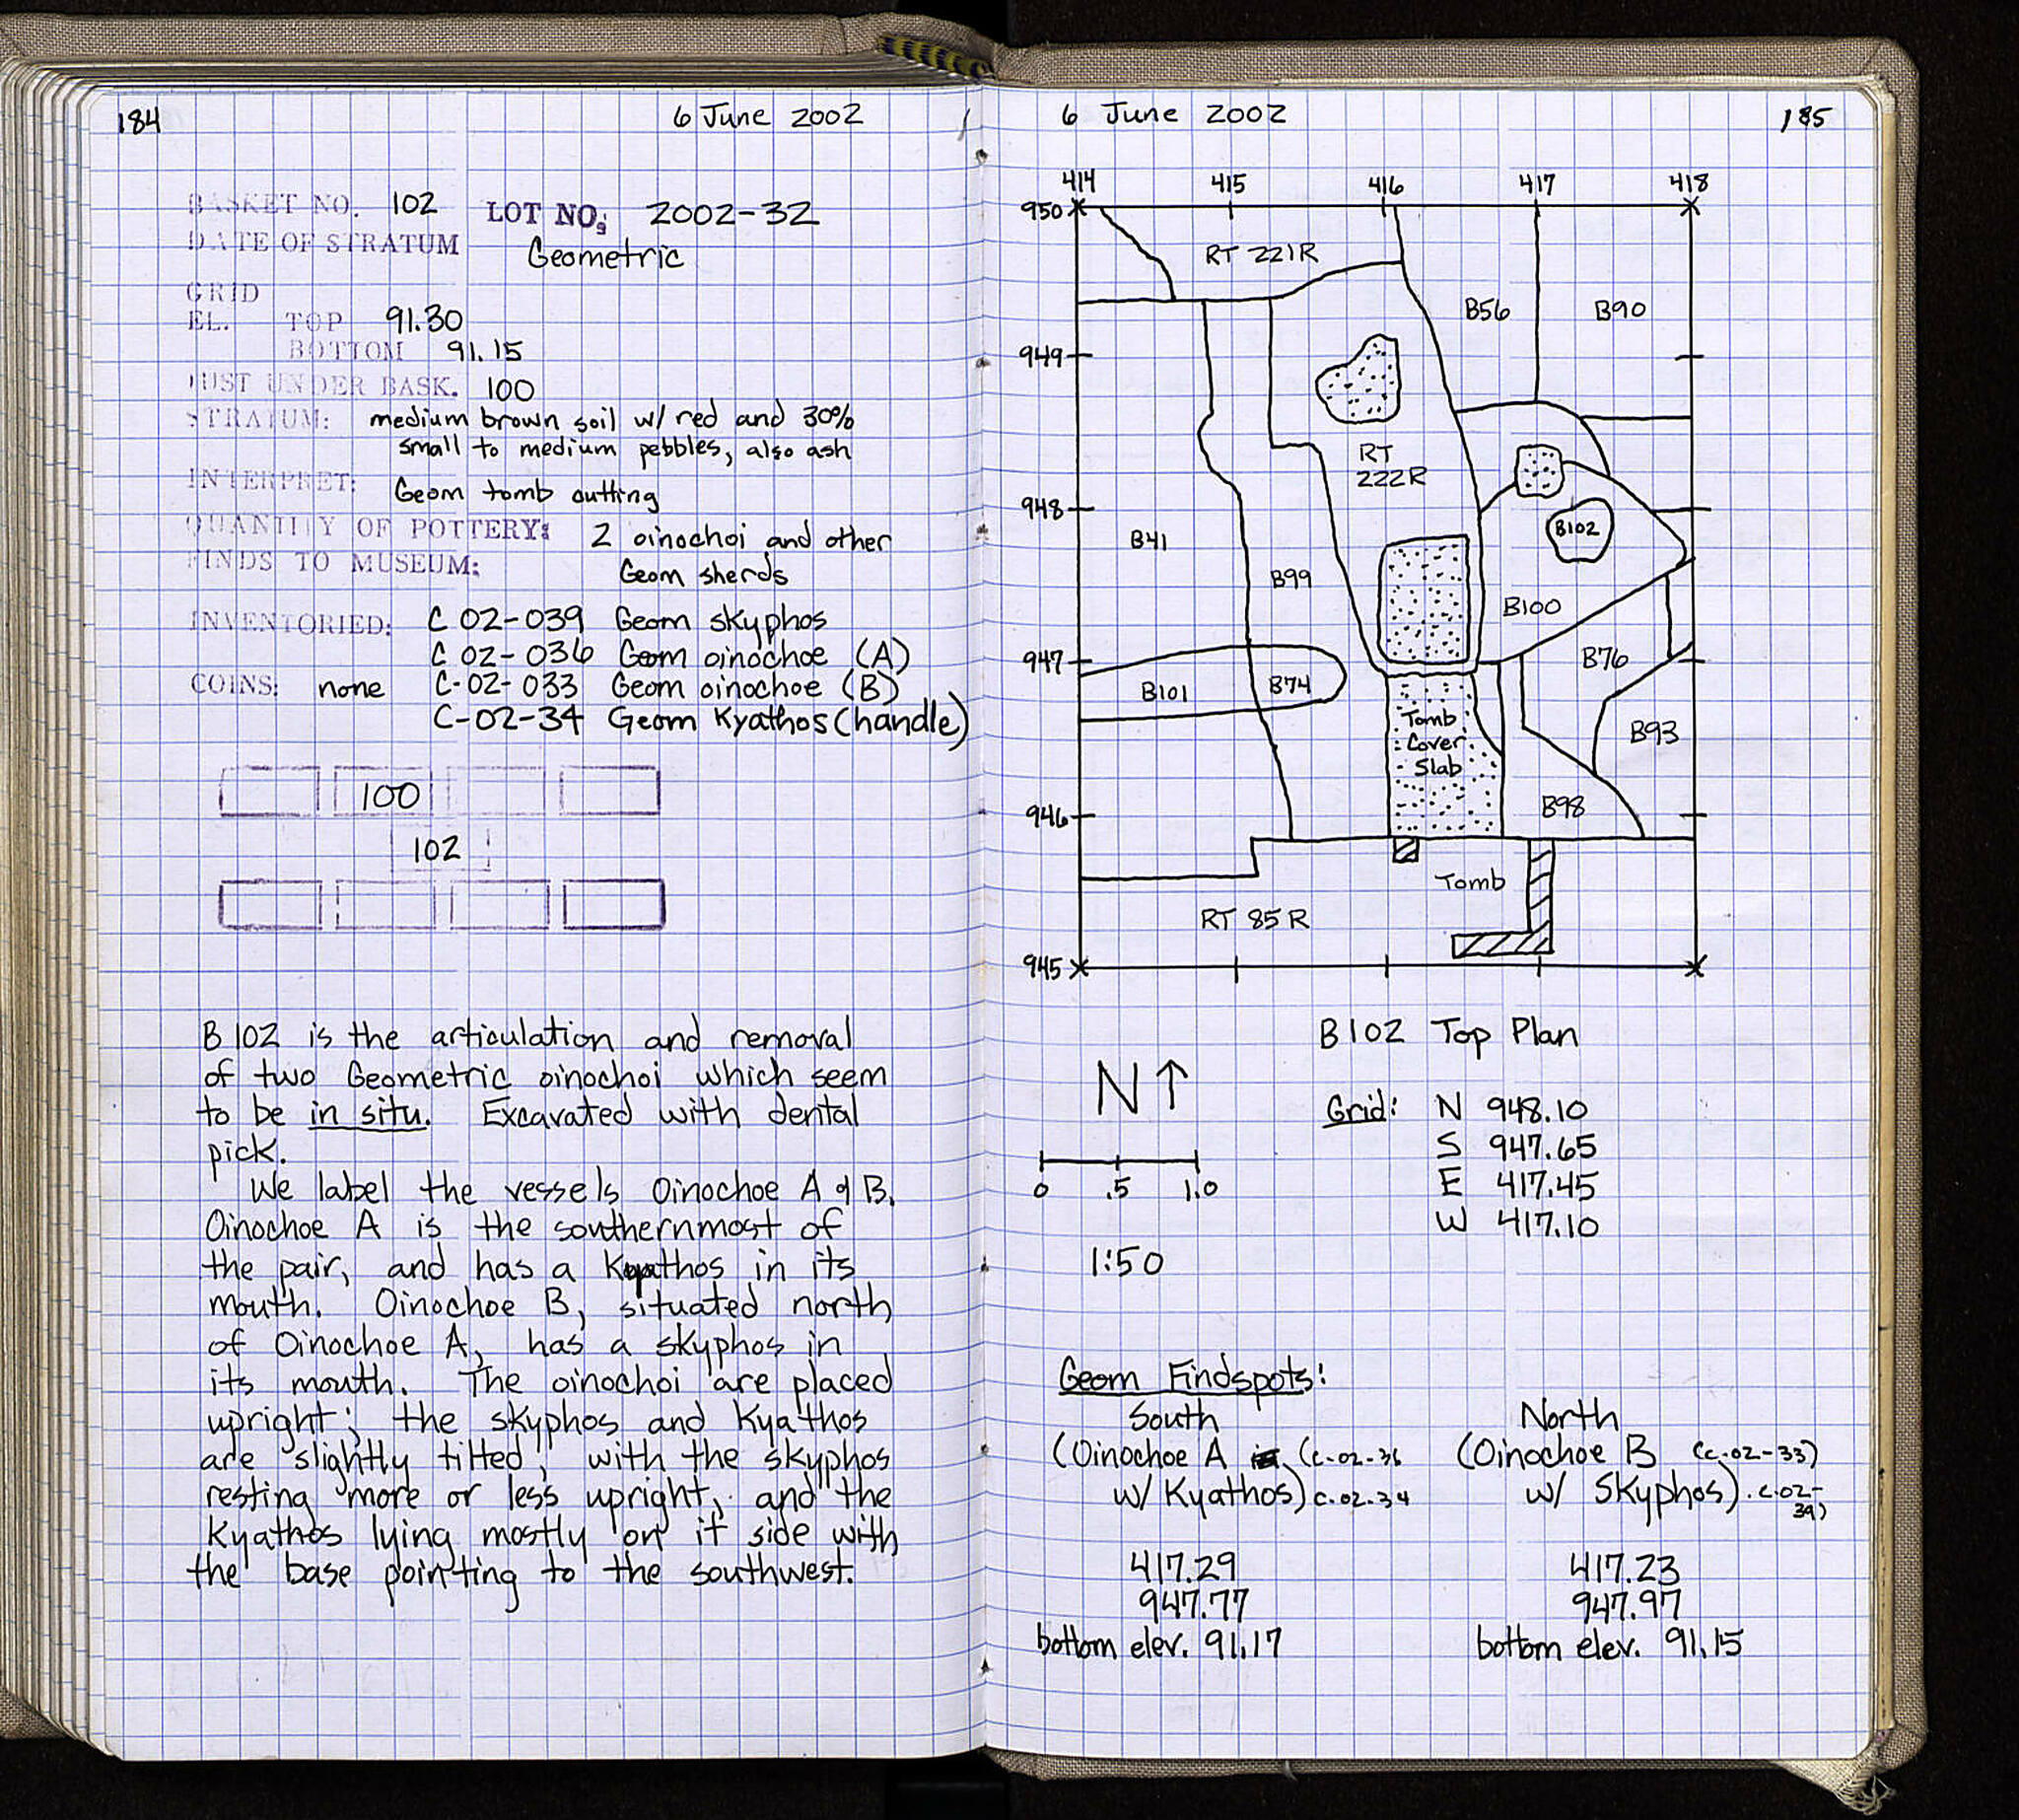 184
6 June 2002
BASKET NO. 102 LOT NO. 2002-32
DATE OF STRATUM Geometric
GRID
EL. TOP 91.30
BOTTOM 91.15
JUST UNDER BASK. 100
STRATUM: medium brown soil w/ red and 30%
small to medium pebbles, also ash
INTERPRET: Geom tomb cutting
QUANTITY OF POTTERY: 2 oinochoi and other
FINDS TO MUSEUM: Geom sherds
INVENTORIED: C 02-039 Geom skyphos
C 02-036 Geom oinochoe (A)
COINS: none C-02-033 Geom oinochoe (B)
C-02-34 Geom Kyathos (handle)
100
102
B 102 is the articulation and removal
of two Geometric oinochoi which seem
to be in situ. Excavated with dental
pick.
We label the vessels Oinochoe A & B.
Oinochoe A is the southernmost of
the pair, and has a Kyathos in its
mouth. Oinochoe B, situated north
of Oinochoe A, has a skyphos in
its mouth. The oinochoi are placed
upright; the skyphos and Kyathos
are slightly tilted, with the skyphos
resting more or less upright, and the
Kyathos lying mostly on it side with
the base pointing to the southwest.
6 June 2002
185
414 415 416 417 418
950
RT 221R
B56
B90
949
RT
222R
948
B102
B41
B99
B100
947
B76
B101
B74
Tomb
Cover
Slab
B93
B98
946
Tomb
RT 85 R
945
B102 Top Plan
N↑
Grid: N 948.10
S 947.65
E 417.45
W 417.10
0 .5 1.0
1:50
Geom Findspots:
South
(Oinochoe A (C-02-36
w/ Kyathos) C-02-34
417.29
947.77
bottom elev. 91.17
North
(Oinochoe B (C-02-33)
w/ Skyphos). C-02-
39)
417.23
947.97
bottom elev. 91.15